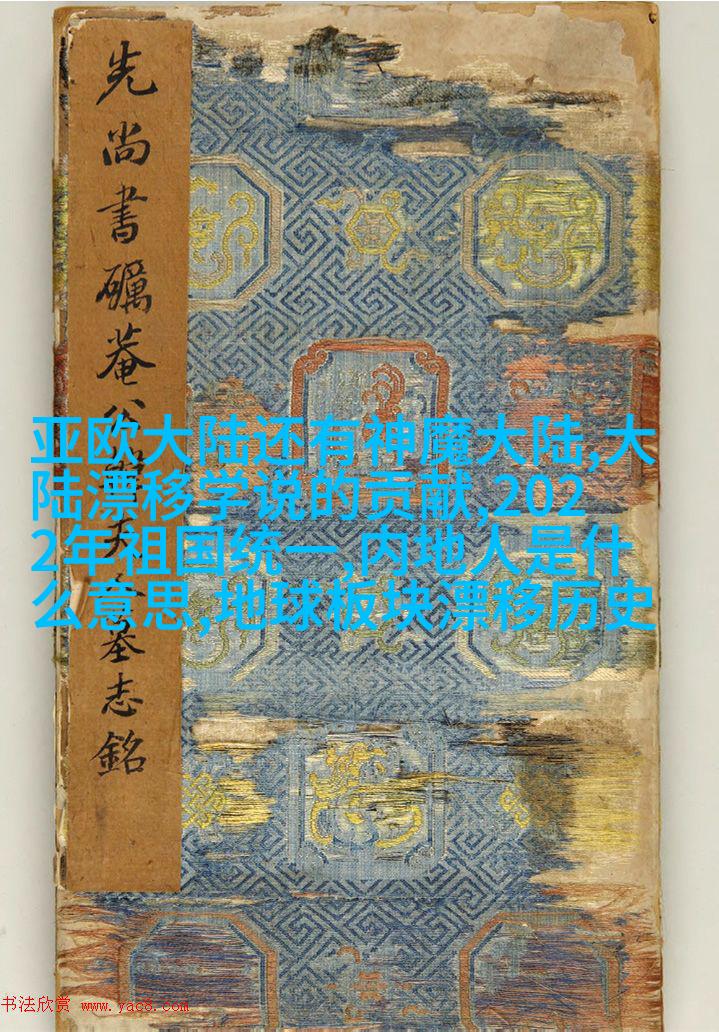 先尚書礪菴公夫人墓志銘
亚欧大陆还有神魔大陆,大
陆漂移学说的贡献,202
2年祖国统一,内地人是什
么意思,地球板块漂移历史
书法欣赏 www.yac8.com